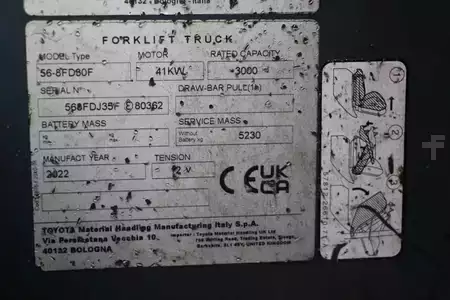 40132 - Bologna - Italia
FORKLIFT TRUCK
MODEL Type MOTOR RATED CAPACITY
56-8FD80F 41KW 3000
SERIAL N° DRAW-BAR PULL(1h)
568FDJ35F E 80362
BATTERY MASS SERVICE MASS
Without Battery kg 5230
MANUFACT YEAR TENSION
2022 12 V
CE UK CA
TOYOTA Material Handling Manufacturing Italy S.p.A.
Via Persicetana Vecchia 10,
40132 BOLOGNA
Importer: Toyota Material Handling UK Ltd
Trading Estate, Slough,
Berkshire, SL1 4SY, UNITED KINGDOM
1
2
3